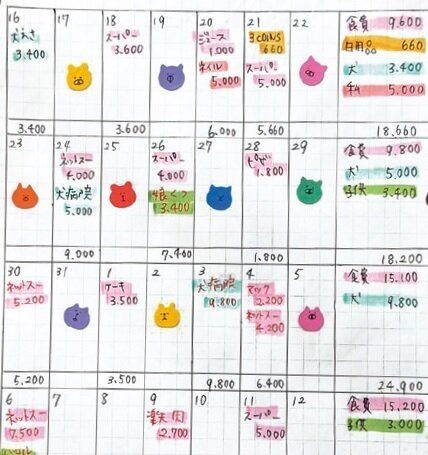 16
犬えさ
3.400
17
18
スーパー
3.600
19
20
ジュース
1.000
ネイル
5.000
21
3COINS
660
スーパー
5.000
22
食費 9.600
日用品 660
犬 3.400
私 5.000
3.400
3.600
6.000
5.660
18.660
23
24
ネットスー
4.000
犬病院
5.000
25
26
スーパー
4.000
娘くつ
3.400
27
28
ピザ
1.800
29
食費 9.800
犬 5.000
子供 3.400
9.000
7.400
1.800
18.200
30
ネットスー
5.200
31
1
ケーキ
3.500
2
3
犬病院
9.800
4
マック
2.200
ネットスー
4.200
5
食費 15.100
犬 9.800
5.200
3.500
9.800
6.400
24.900
6
ネットスー
7.500
7
8
9
楽天肉
2.700
10
11
スーパー
5.000
12
食費 15.200
子供 3.000